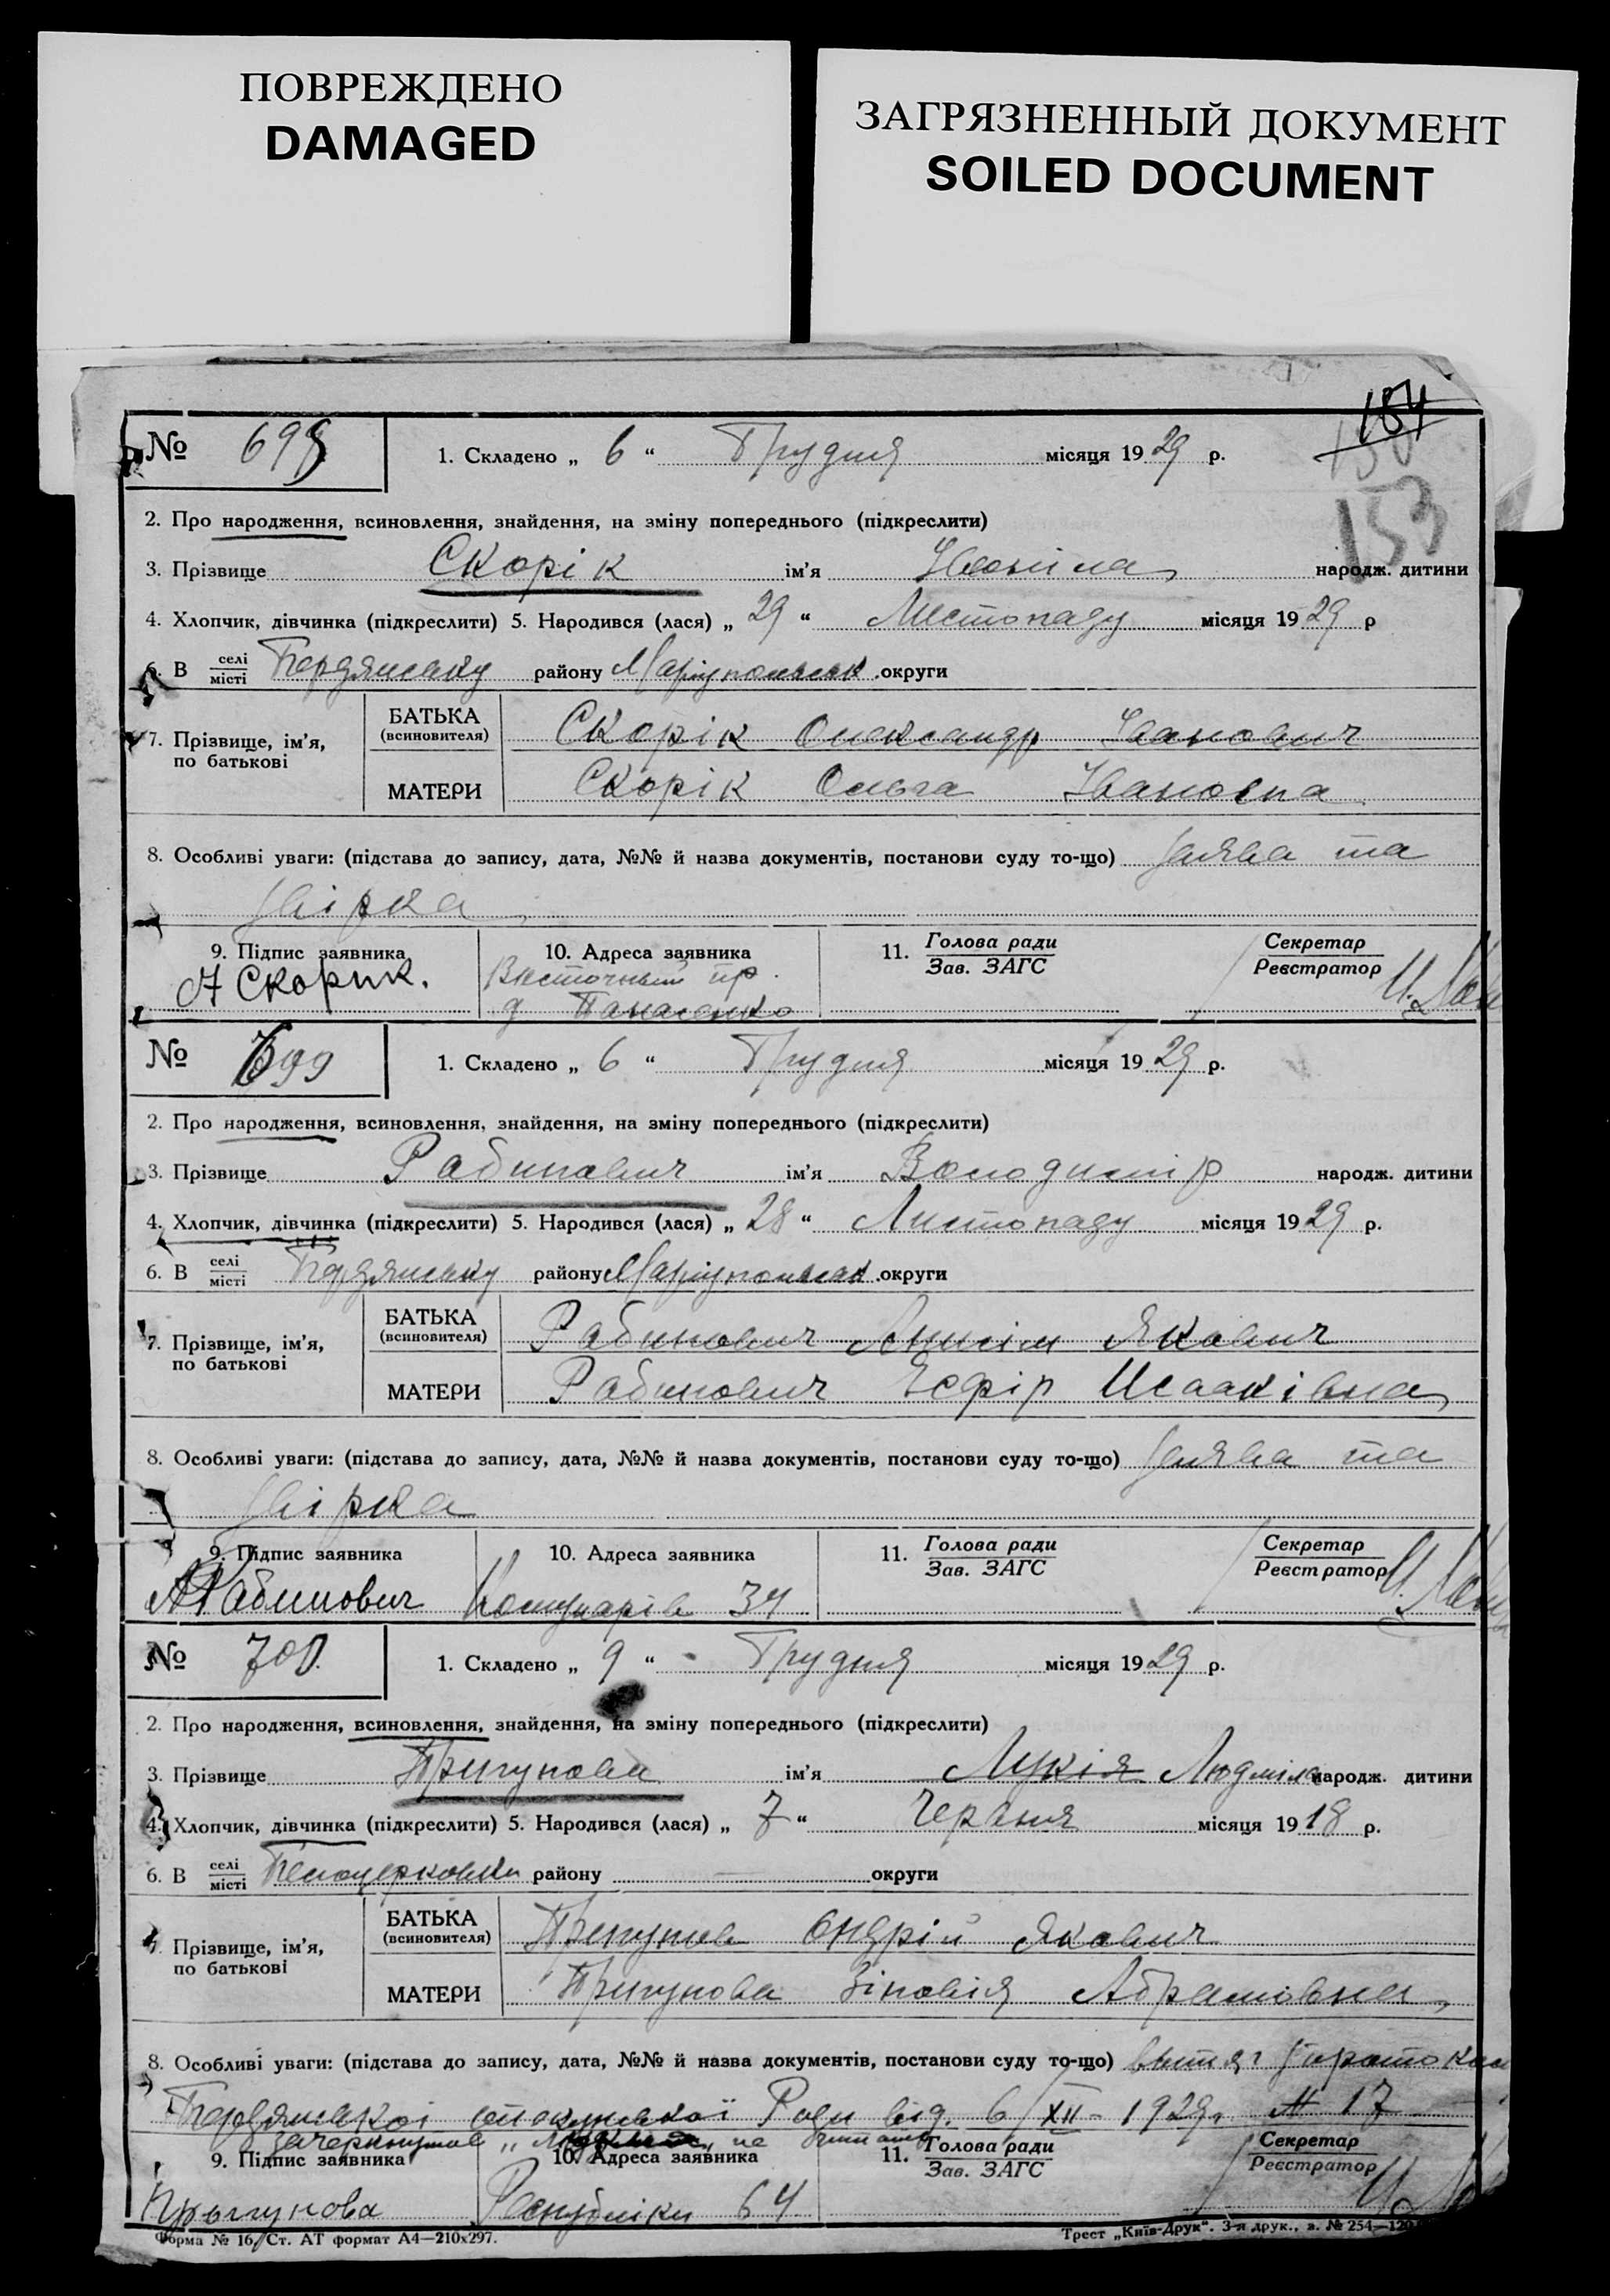 ПОВРЕЖДЕНО
DAMAGED
ЗАГРЯЗНЕННЫЙ ДОКУМЕНТ
SOILED DOCUMENT
154
153
№ 698 1. Складено „ 6 “ Грудня місяця 1929 р.
2. Про народження, всиновлення, знайдення, на зміну попереднього (підкреслити)
3. Прізвище Скорік ім’я народж. дитини
4. Хлопчик, дівчинка (підкреслити) 5. Народився (лася) „ 29 “ Листопаду місяця 1929 р
6. В селі місті Бердянську району Маріупольськ. округи
7. Прізвище, ім’я, по батькові
БАТЬКА (всиновителя) Скорік Олександр Іванович
МАТЕРИ Скорік Ольга Івановна
8. Особливі уваги: (підстава до запису, дата, №№ й назва документів, постанови суду то-що) Заява та
звірка
9. Підпис заявника 10. Адреса заявника 11. Голова ради Зав. ЗАГС Секретар Реєстратор
А Скорик. Восточный пр.
д Панасенко
№ 699 1. Складено „ 6 “ Грудня місяця 1929 р.
2. Про народження, всиновлення, знайдення, на зміну попереднього (підкреслити)
3. Прізвище Рабинович ім’я Володимір народж. дитини
4. Хлопчик, дівчинка (підкреслити) 5. Народився (лася) „ 28 “ Листопаду місяця 1929 р.
6. В селі місті Бердянську району Маріупольськ. округи
7. Прізвище, ім’я, по батькові
БАТЬКА (всиновителя) Рабинович Якович
МАТЕРИ Рабинович Есфір Исааківна
8. Особливі уваги: (підстава до запису, дата, №№ й назва документів, постанови суду то-що) Заява та
звірка
9. Підпис заявника 10. Адреса заявника 11. Голова ради Зав. ЗАГС Секретар Реєстратор
А Рабинович Комунарів 34
№ 700 1. Складено „ 9 “ Грудня місяця 1929 р.
2. Про народження, всиновлення, знайдення, на зміну попереднього (підкреслити)
3. Прізвище Пригунова ім’я Лукія Людміла народж. дитини
4. Хлопчик, дівчинка (підкреслити) 5. Народився (лася) „ 7 “ Червня місяця 1918 р.
6. В селі місті району округи
7. Прізвище, ім’я, по батькові
БАТЬКА (всиновителя) Пригунов Андрій Якович
МАТЕРИ Пригунова Зіновія Абрамовна
8. Особливі уваги: (підстава до запису, дата, №№ й назва документів, постанови суду то-що) витяг
Бердянської Ради від. 6/XII - 1929р. № 17
9. Підпис заявника 10. Адреса заявника 11. Голова ради Зав. ЗАГС Секретар Реєстратор
Прыгунова Республіки 64
Форма № 16. Ст. АТ формат А4—210х297.
Трест „Київ-Друк“. 3-я друк., з. № 254—